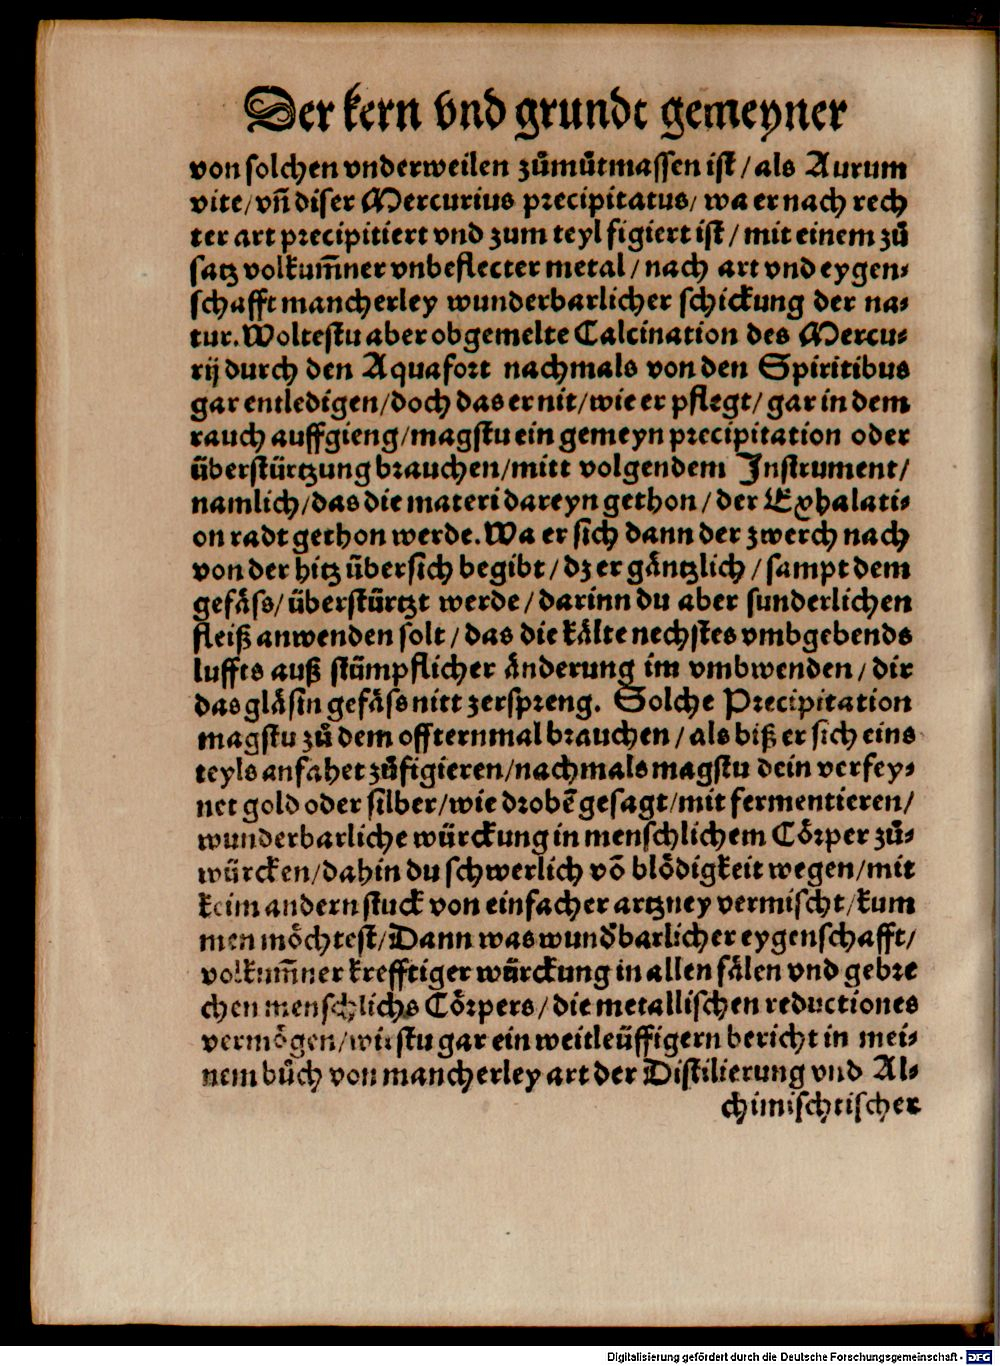 Der kern vnd grundt gemeyner
von solchen vnderweilen zůmůtmassen ist / als Aurum
vite / vñ diser Mercurius precipitatus / wa er nach rech
ter art precipitiert vnd zum teyl figiert ist / mit einem zů
satz volkum̃ner vnbeflecter metal / nach art vnd eygen⸗
schafft mancherley wunderbarlicher schickung der na⸗
tur. Woltestu aber obgemelte Calcination des Mercu⸗
rij durch den Aquafort nachmals von den Spiritibus
gar entledigen / doch das er nit / wie er pflegt / gar in dem
rauch auffgieng / magstu ein gemeyn precipitation oder
überstürtzung brauchen / mitt volgendem Instrument /
namlich / das die materi dareyn gethon / der Exhalati⸗
on radt gethon werde. Wa er sich dann der zwerch nach
von der hitz übersich begibt / dz er gäntzlich / sampt dem
gefäss / überstürtzt werde / darinn du aber sunderlichen
fleiß anwenden solt / das die kälte nechstes vmbgebends
luffts auß stümpflicher änderung im vmbwenden / dir
das gläsin gefäss nitt zerspreng. Solche Precipitation
magstu zů dem offternmal brauchen / als biß er sich eins
teyls anfahet zůfigieren / nachmals magstu dein verfey⸗
net gold oder silber / wie drobẽ gesagt / mit fermentieren /
wunderbarliche würckung in menschlichem Cörper zů⸗
würcken / dahin du schwerlich võ blödigkeit wegen / mit
keim andern stuck von einfacher artzney vermischt / kum
men möchtest / Dann was wund'barlicher eygenschafft /
volkum̃ner krefftiger würckung in allen fälen vnd gebre
chen menschlichs Cörpers / die metallischen reductiones
vermögen / wirstu gar ein weitleüffigern bericht in mei⸗
nem bůch von mancherley art der Distilierung vnd Al⸗
chimischtischer
Digitalisierung gefördert durch die Deutsche Forschungsgemeinschaft - DFG